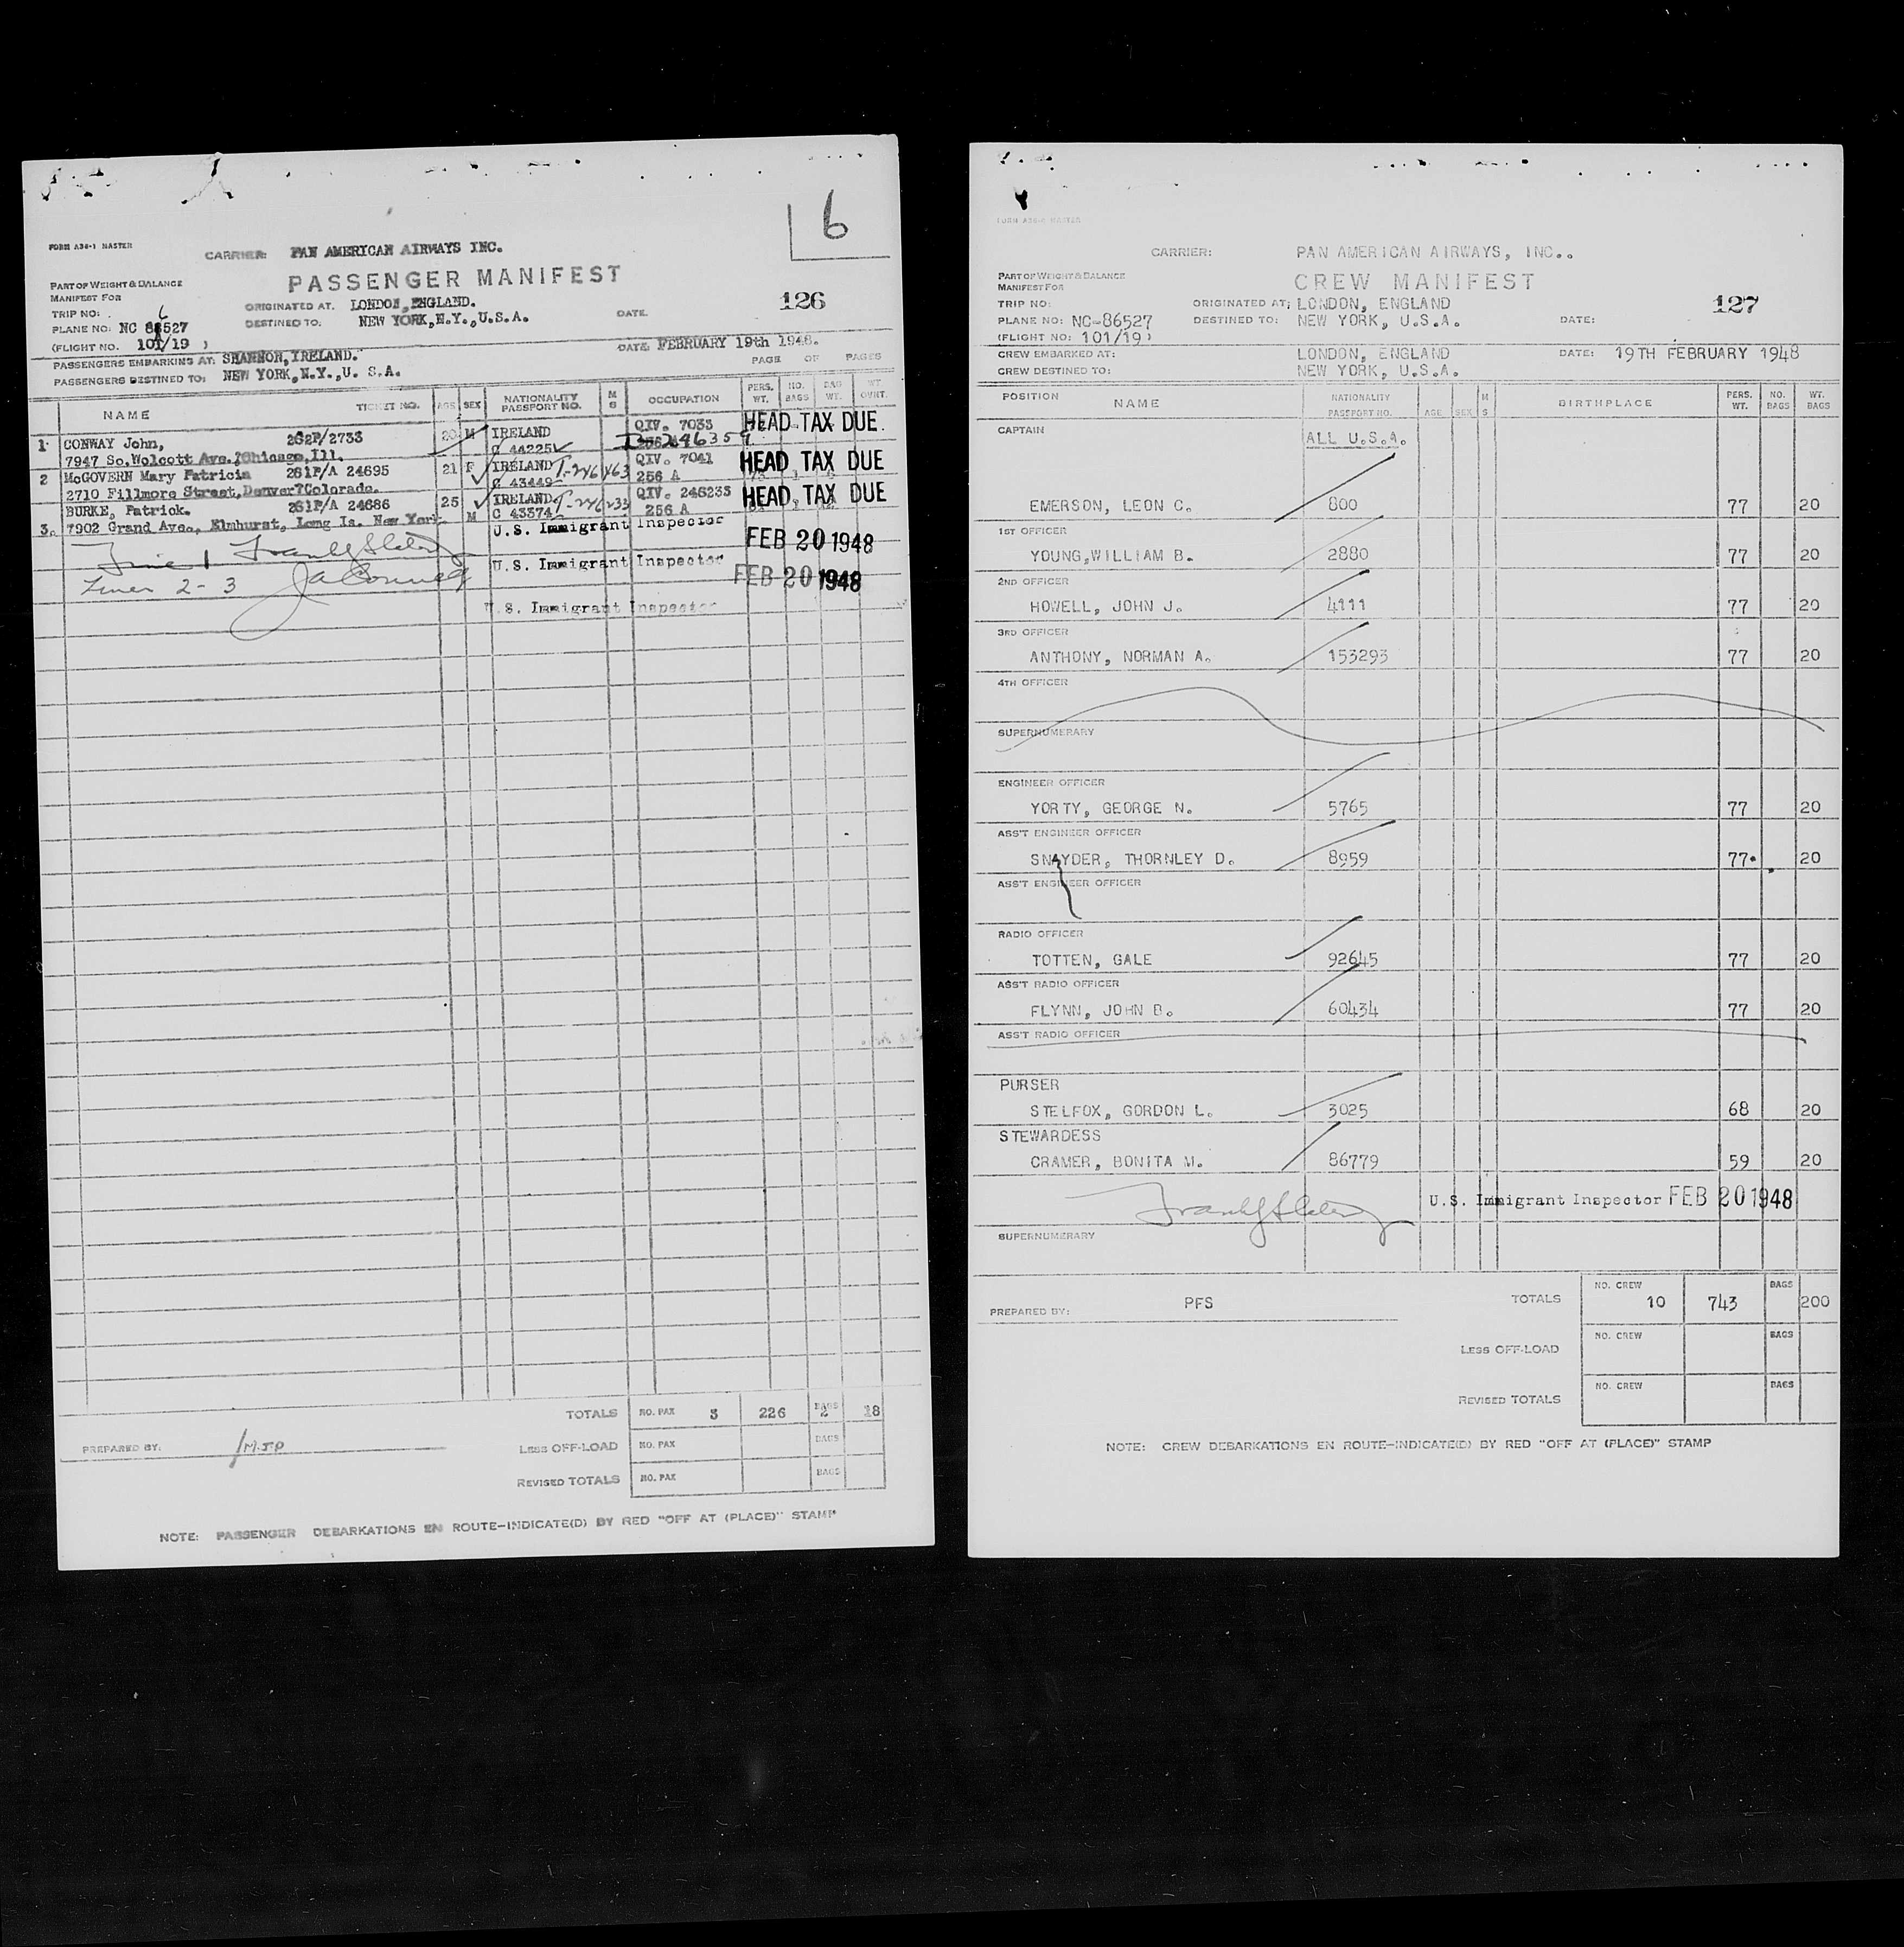 6
FORM A36-1 MASTER
CARRIER: PAN AMERICAN AIRWAYS INC.
PASSENGER MANIFEST
PART OF WEIGHT & BALANCE
MANIFEST FOR
126
TRIP NO: 6
ORIGINATED AT. LONDON, ENGLAND.
PLANE NO: NC 86527
DESTINED TO. NEW YORK,N.Y.,U.S.A. DATE.
(FLIGHT NO. 101/19 )
PASSENGERS EMBARKING AT: SHANNON, IRELAND. DATE: FEBRUARY 19th 1948.
PASSENGERS DESTINED TO: NEW YORK,N.Y.,U. S.A. PAGE OF PAGES
NAME TICKET NO. AGE SEX NATIONALITY PASSPORT NO. M S OCCUPATION PERS. WT. NO. BAGS BAG WT. WT. OVWT.
1 CONWAY John, 262P/2733 20 M IRELAND QIV. 7033 HEAD TAX DUE.
7947 So,Wolcott Ave.?Chicago,Ill. C 44225
2 McGOVERN Mary Patricia 261P/A 24695 21 F IRELAND T-246463 QIV. 7041 HEAD TAX DUE
2710 Fillmore Street,Denver?Colorado. C 43449 256 A
BURKE, Patrick. 261P/A 24686 25 IRELAND T-246233 QIV. 246233 HEAD TAX DUE
3. 7902 Grand Ave., Elmhurst, Long Is. New York. M C 43374 256 A
U.S. Immigrant Inspector FEB 20 1948
Line 1
U.S. Immigrant Inspector FEB 20 1948
Lines 2-3
U.S. Immigrant Inspector
TOTALS NO. PAX 3 226 BAGS 2 18
PREPARED BY: MJP
LESS OFF-LOAD NO. PAX BAGS
REVISED TOTALS NO. PAX BAGS
NOTE: PASSENGER DEBARKATIONS EN ROUTE-INDICATE(D) BY RED "OFF AT (PLACE)" STAMP
FORM A36-2 MASTER
CARRIER: PAN AMERICAN AIRWAYS, INC..
PART OF WEIGHT & BALANCE
MANIFEST FOR
CREW MANIFEST
TRIP NO: ORIGINATED AT: LONDON, ENGLAND 127
PLANE NO: NC-86527 DESTINED TO: NEW YORK, U.S.A. DATE:
(FLIGHT NO: 101/19)
CREW EMBARKED AT: LONDON, ENGLAND DATE: 19TH FEBRUARY 1948
CREW DESTINED TO: NEW YORK, U.S.A.
POSITION NAME NATIONALITY PASSPORT NO. AGE SEX M S BIRTHPLACE PERS. WT. NO. BAGS WT. BAGS
CAPTAIN ALL U.S.A.
EMERSON, LEON C. 800 77 20
1ST OFFICER
YOUNG,WILLIAM B. 2880 77 20
2ND OFFICER
HOWELL, JOHN J. 4111 77 20
3RD OFFICER
ANTHONY, NORMAN A. 153293 77 20
4TH OFFICER
SUPERNUMERARY
ENGINEER OFFICER
YORTY, GEORGE N. 5765 77 20
ASS'T ENGINEER OFFICER
SNAYDER, THORNLEY D. 8959 77 20
ASS'T ENGINEER OFFICER
RADIO OFFICER
TOTTEN, GALE 92645 77 20
ASS'T RADIO OFFICER
FLYNN, JOHN B. 60434 77 20
ASS'T RADIO OFFICER
PURSER
STELFOX, GORDON L. 3025 68 20
STEWARDESS
CRAMER, BONITA M. 86779 59 20
U.S. Immigrant Inspector FEB 20 1948
SUPERNUMERARY
TOTALS NO. CREW 10 743 BAGS 200
PREPARED BY: PFS
LESS OFF-LOAD NO. CREW BAGS
REVISED TOTALS NO. CREW BAGS
NOTE: CREW DEBARKATIONS EN ROUTE-INDICATE(D) BY RED "OFF AT (PLACE)" STAMP